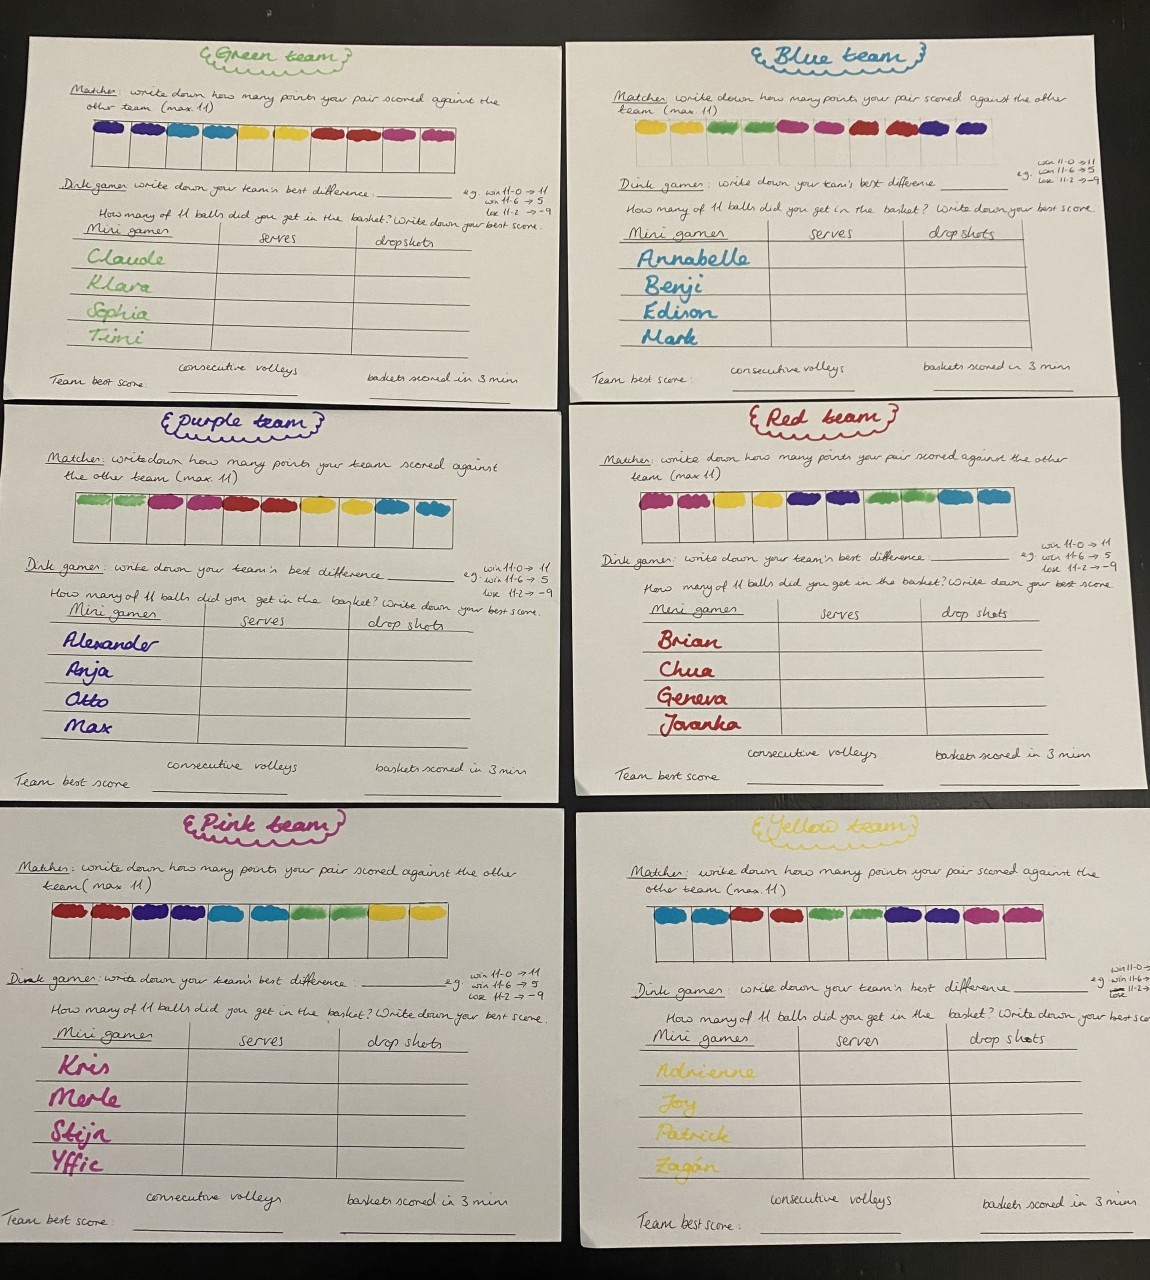 Green team
Matches: write down how many points your pair scored against the
other team (max 11)
Dink games: write down your team's best difference:
e.g. win 11-0 → 11
win 11-6 → 5
lose 11-2 → -9
How many of 11 balls did you get in the basket? Write down your best score.
Mini games serves drop shots
Claude
Klara
Sophia
Timi
consecutive volleys baskets scored in 3 mins
Team best score:
Blue team
Matches: write down how many points your pair scored against the other
team (max 11)
Dink games: write down your team's best difference
e.g. win 11-0 → 11
win 11-6 → 5
lose 11-2 → -9
How many of 11 balls did you get in the basket? Write down your best score.
Mini games serves drop shots
Annabelle
Benji
Edison
Mark
consecutive volleys baskets scored in 3 mins
Team best score:
Purple team
Matches: write down how many points your team scored against
the other team (max 11)
Dink games: write down your team's best difference
e.g. win 11-0 → 11
win 11-6 → 5
lose 11-2 → -9
How many of 11 balls did you get in the basket? Write down your best score.
Mini games serves drop shots
Alexander
Anja
Otto
Max
consecutive volleys baskets scored in 3 mins
Team best score
Red team
Matches: write down how many points your pair scored against the other
team (max 11)
Dink games: write down your team's best difference
e.g. win 11-0 → 11
win 11-6 → 5
lose 11-2 → -9
How many of 11 balls did you get in the basket? Write down your best score
Mini games serves drop shots
Brian
Chua
Geneva
Jovanka
consecutive volleys baskets scored in 3 mins
Team best score
Pink team
Matches: write down how many points your pair scored against the other
team (max 11)
Dink games: write down your team's best difference:
e.g. win 11-0 → 11
win 11-6 → 5
lose 11-2 → -9
How many of 11 balls did you get in the basket? Write down your best score.
Mini games serves drop shots
Kris
Merle
Stijn
Yffic
consecutive volleys baskets scored in 3 mins
Team best score:
Yellow team
Matches: write down how many points your pair scored against the
other team (max 11)
Dink games: write down your team's best difference
e.g. win 11-0 →
win 11-6 →
lose 11-2 →
How many of 11 balls did you get in the basket? Write down your best sco
Mini games serves drop shots
Adrienne
Joy
Patrick
Zagán
consecutive volleys baskets scored in 3 mins
Team best score: